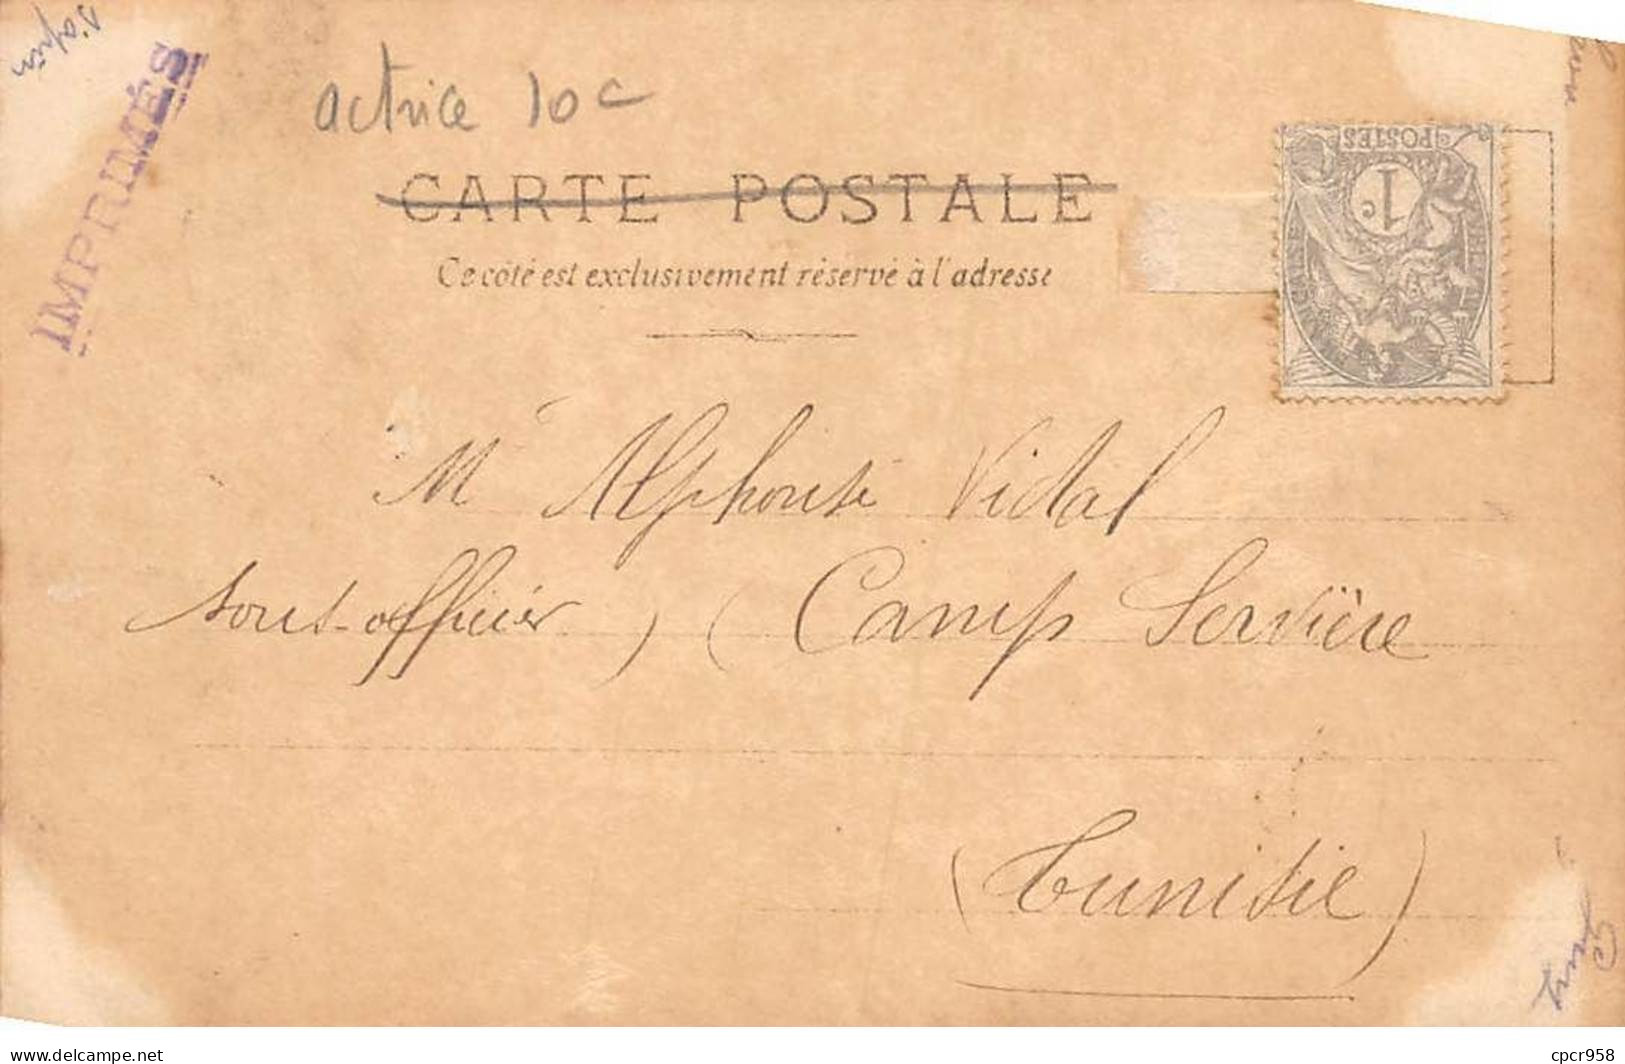 IMPRIMÉS
actrice 10c
CARTE POSTALE
Ce côté est exclusivement réservé à l'adresse
POSTES
1c
M Alphonse Vidal
sous-officier (Camp Servière)
(Tunisie)
delcampe.net
cpcr958